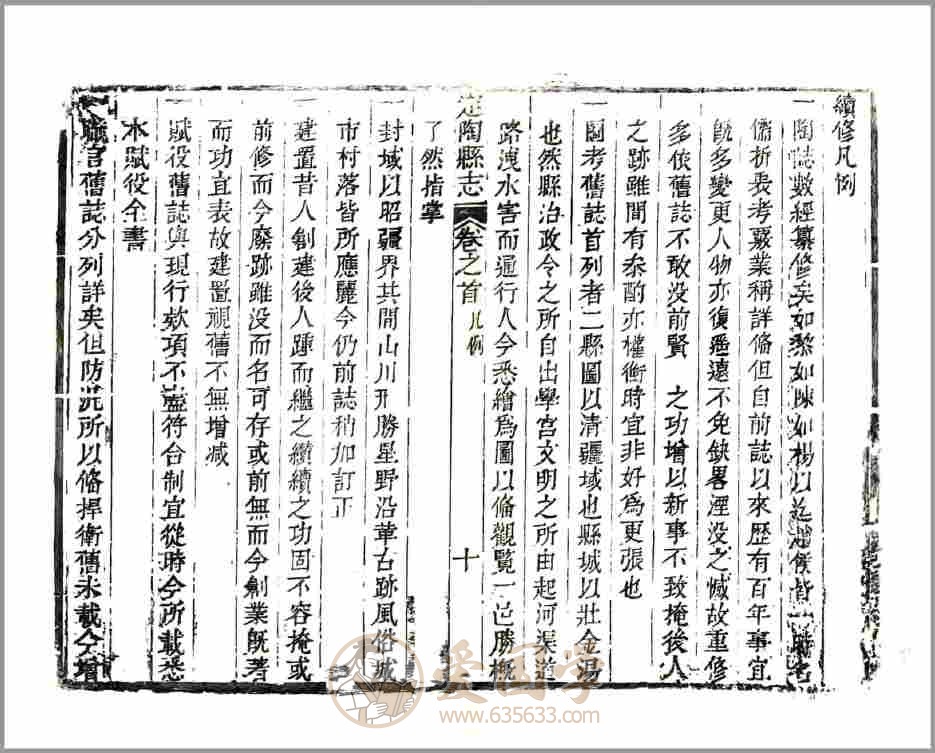 續修凡例
一陶誌數經纂修矣如黎如陳如楊以迄趙侯皆一時名
儒析疑考覈業稱詳俻但自前誌以來歷有百年事宜
旣多變更人物亦復遥遠不免缺畧湮没之憾故重修
多依舊誌不敢没前賢 之功增以新事不致掩後人
之跡雖間有叅酌亦權衡時宜非好爲更張也
一圖考舊誌首列者二縣圖以清疆域也縣城以壯金湯
也然縣治政令之所自出學宫文明之所由起河渠道
路洩水害而通行人今悉繪爲圖以俻觀覧一邑勝概
定陶縣志 卷之首 凡例 十
了然指掌
一封域以昭疆界其間山川形勝星野沿革古跡風俗城
市村落皆所應麗今仍前誌稍加訂正
一建置昔人創建後人踵而繼之纘續之功固不容掩或
前修而今廢跡雖没而名可存或前無而今創業旣著
而功宜表故建置視舊不無增减
一賦役舊誌與現行欵項不盡符合制宜從時今所載悉
本賦役全書
一職官舊誌分列詳矣但防汛所以俻捍衛舊未載今增
爱国学
www.635633.com